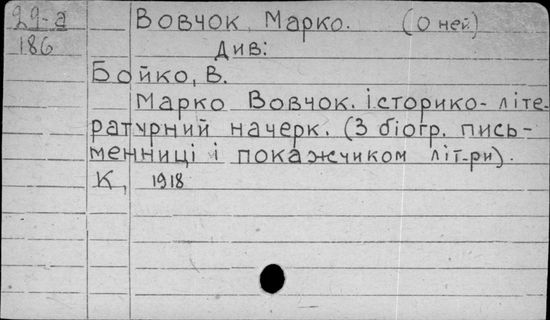 29-а Вовчок, Марко. (О ней.)
186 Див:
Бойко, В.
Марко Вовчок. історико-літе-
ратурний начерк. (З біогр. пись-
менниці і покажчиком літ-ри).
К, 1918